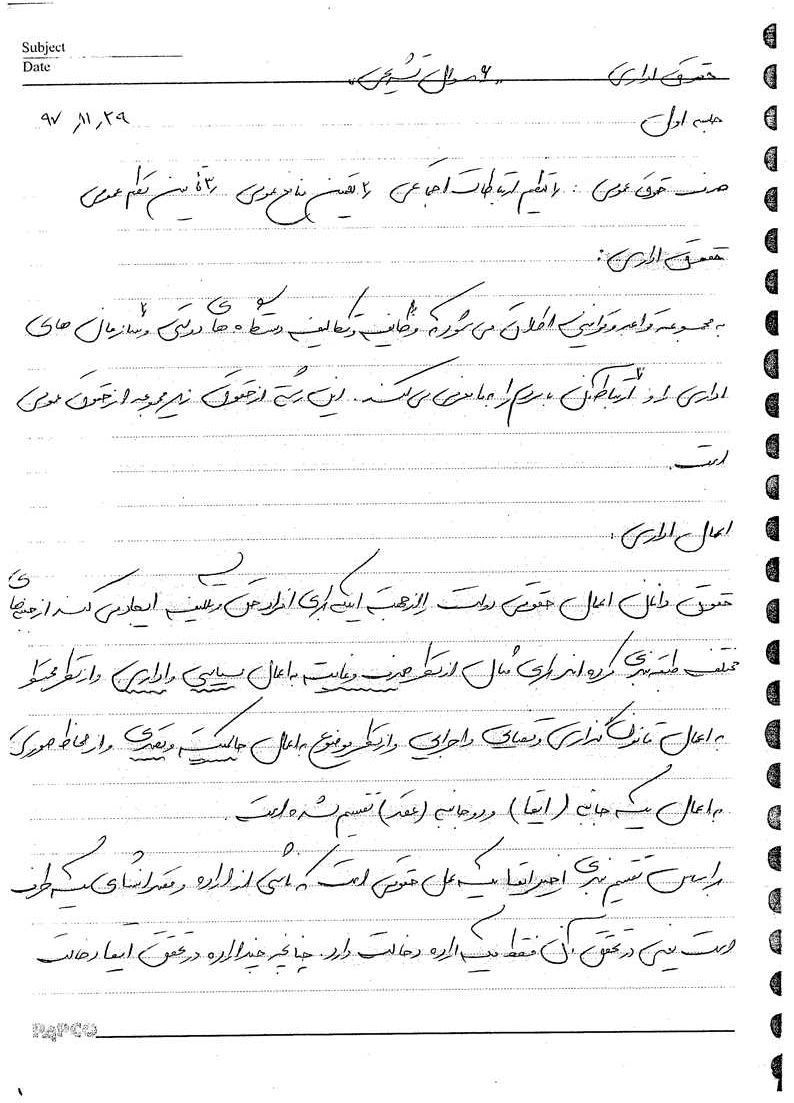 Subject
Date
حقوق اداری ۶ سوال تشریحی
جلسه اول ۹۷/۱۱/۲۹
هدف حقوق عمومی : ۱/ تنظیم ارتباطات اجتماعی ۲/ تعیین منافع عمومی ۳/ تأمین نظم عمومی
حقوق اداری :
به مجموعه قواعد و قوانینی اطلاق می شود که وظایف و تکالیف دستگاه های دولتی و سازمان های
اداری را و ارتباط آن با مردم را بیان می کند. این رشته از حقوق زیر مجموعه از حقوق عمومی
است.
اعمال اداری :
حقوق داخلی اعمال حقوقی دولت را از جهت اینکه برای افراد حق و تکلیف ایجاد می کند از جنبه های
مختلف طبقه بندی کرده اند برای مثال از نظر هدف و غایت به اعمال سیاسی و اداری و از نظر محتوا
به اعمال قانون گذاری و قضایی و اجرایی و از نظر موضوع به اعمال حاکمیت و تصدی و از لحاظ صوری
به اعمال یک جانبه (ایقاع) و دو جانبه (عقد) تقسیم شده است.
بر اساس تقسیم بندی اخیر ایقاع یک عمل حقوقی است که ناشی از اراده و قصد انشای یک طرف
است یعنی در تحقق آن فقط یک اراده دخالت دارد. چنانچه چند اراده در تحقق ایقاع دخالت
PAPCO
۱